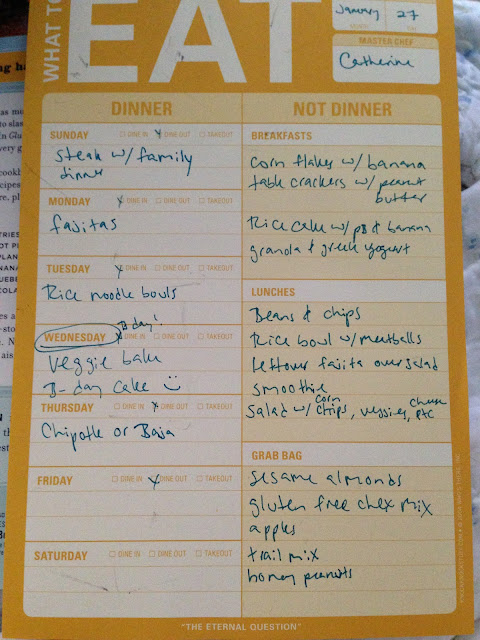 WHAT TO
EAT
January 27
MASTER CHEF
Catherine
DINNER
SUNDAY ☐ DINE IN ☐ DINE OUT ☐ TAKEOUT
Steak w/ family
dinner
MONDAY ☐ DINE IN ☐ DINE OUT ☐ TAKEOUT
fajitas
TUESDAY ☐ DINE IN ☐ DINE OUT ☐ TAKEOUT
Rice noodle bowls
B day!
WEDNESDAY ☐ DINE IN ☐ DINE OUT ☐ TAKEOUT
Veggie bake
B-day Cake
THURSDAY ☐ DINE IN ☐ DINE OUT ☐ TAKEOUT
Chipotle or Baja
FRIDAY ☐ DINE IN ☐ DINE OUT ☐ TAKEOUT
SATURDAY ☐ DINE IN ☐ DINE OUT ☐ TAKEOUT
NOT DINNER
BREAKFASTS
corn flakes w/ banana
table crackers w/ peanut
butter
Rice cake w/ pb & banana
granola & greek yogurt
LUNCHES
Beans & chips
Rice bowl w/ meatballs
leftover fajita over salad
smoothie
Salad w/ corn chips, veggies, cheese, etc
GRAB BAG
sesame almonds
gluten free chex mix
apples
trail mix
honey peanuts
"THE ETERNAL QUESTION"